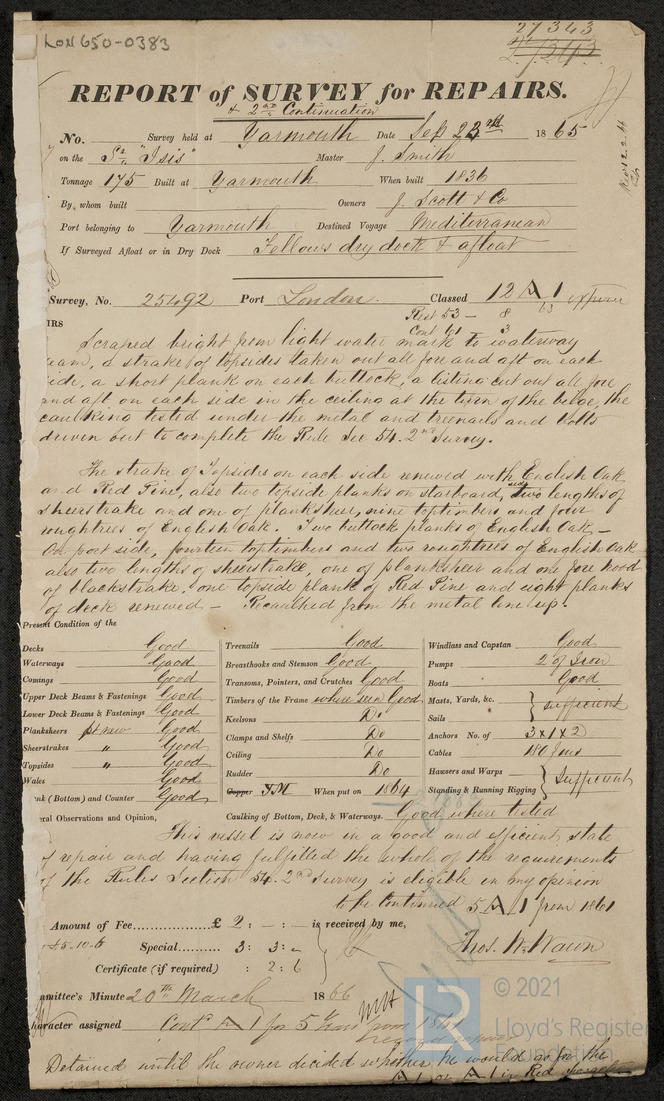 LON 650-0383
27343
REPORT of SURVEY for REPAIRS.
& 2nd Continuation
No. Survey held at Yarmouth Date Sep 23rd 1865
on the Sr "Isis" Master J. Smith
Tonnage 175 Built at Yarmouth When built 1836
By whom built Owners J. Scott & Co
Port belonging to Yarmouth Destined Voyage Mediterranean
If Surveyed Afloat or in Dry Dock Fellows dry dock & afloat
Survey, No. 25492 Port London. Classed 12 A 1 expired
63
Rest 53 - 8
IRS Cont 61 3
Scraped bright from light water mark to waterway
eam, a strake of topsides taken out all fore and aft on each
ide, a short plank on each buttock, a listing cut out all fore
and aft on each side in the ceiling at the turn of the bilge, the
caulking tested under the metal and treenails and bolts
driven out to complete the Rule Sec 54. 2nd Survey.
The strake of Topsides on each side renewed with English Oak
and Red Pine, also two topside planks on starboard side, two lengths of
sheerstrake and one of plankshear, nine toptimbers and four
roughtrees of English Oak. Two buttock planks of English Oak -
On port side, fourteen toptimbers and two roughtrees of English Oak
also two lengths of sheerstrake, one of plankshear and one fore hood
of blackstrake, one topside plank of Red Pine and eight planks
of deck renewed - Recaulked from the metal line up.
Present Condition of the
Decks Good
Waterways Good
Comings Good
Upper Deck Beams & Fastenings Good
Lower Deck Beams & Fastenings Good
Planksheers pt new Good
Sheerstrakes " Good
Topsides " Good
Wales Good
nk (Bottom) and Counter Good
Treenails Good
Breasthooks and Stemson Good
Transoms, Pointers, and Crutches Good
Timbers of the Frame where seen Good
Keelsons Do
Clamps and Shelfs Do
Ceiling Do
Rudder Do
Copper YM When put on 1864
Caulking of Bottom, Deck, & Waterways. Good, where tested
Windlass and Capstan Good
Pumps 2 of Iron
Boats Good
Masts, Yards, &c. } sufficient
Sails
Anchors No. of 3 x 1 x 2
Cables 180 fms
Hawsers and Warps } Sufficient
Standing & Running Rigging
eral Observations and Opinion,
This vessel is now in a good and efficient state
of repair and having fulfilled the whole of the requirements
of the Rules Section 54. 2nd Survey is eligible in my opinion
to be continued 5 A 1 from 1861
Amount of Fee £ 2 : - : - is received by me,
£5-10-6 Special 3 : 3 : -
Certificate (if required) : 2 : 6
Thos. W. Wawn
mmittee's Minute 20th March 1866
haracter assigned Contd A 1 for 5 Years from 1861
Detained until the owner decided whether he would go for the
A 1 or A 1 in Red
© 2021
Lloyd's Register
Foundation